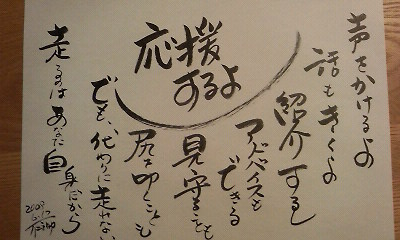 声をかけるよ
話もきくよ
紹介するし
アドバイスも
できる
見守ることも
尻を叩くことも
応援
するよ
でも、代わりに走れない
走るのはあなた自身だから
2009
6.17